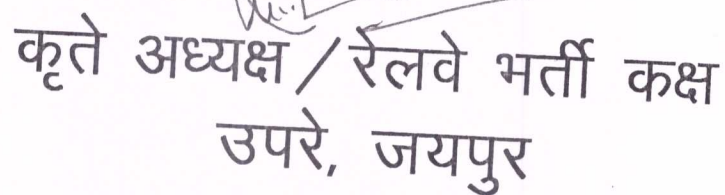 कृते अध्यक्ष / रेलवे भर्ती कक्ष
उपरे, जयपुर